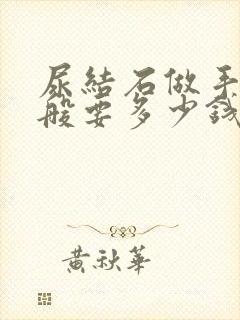 尿結石做手
般要多少錢
黃秋華